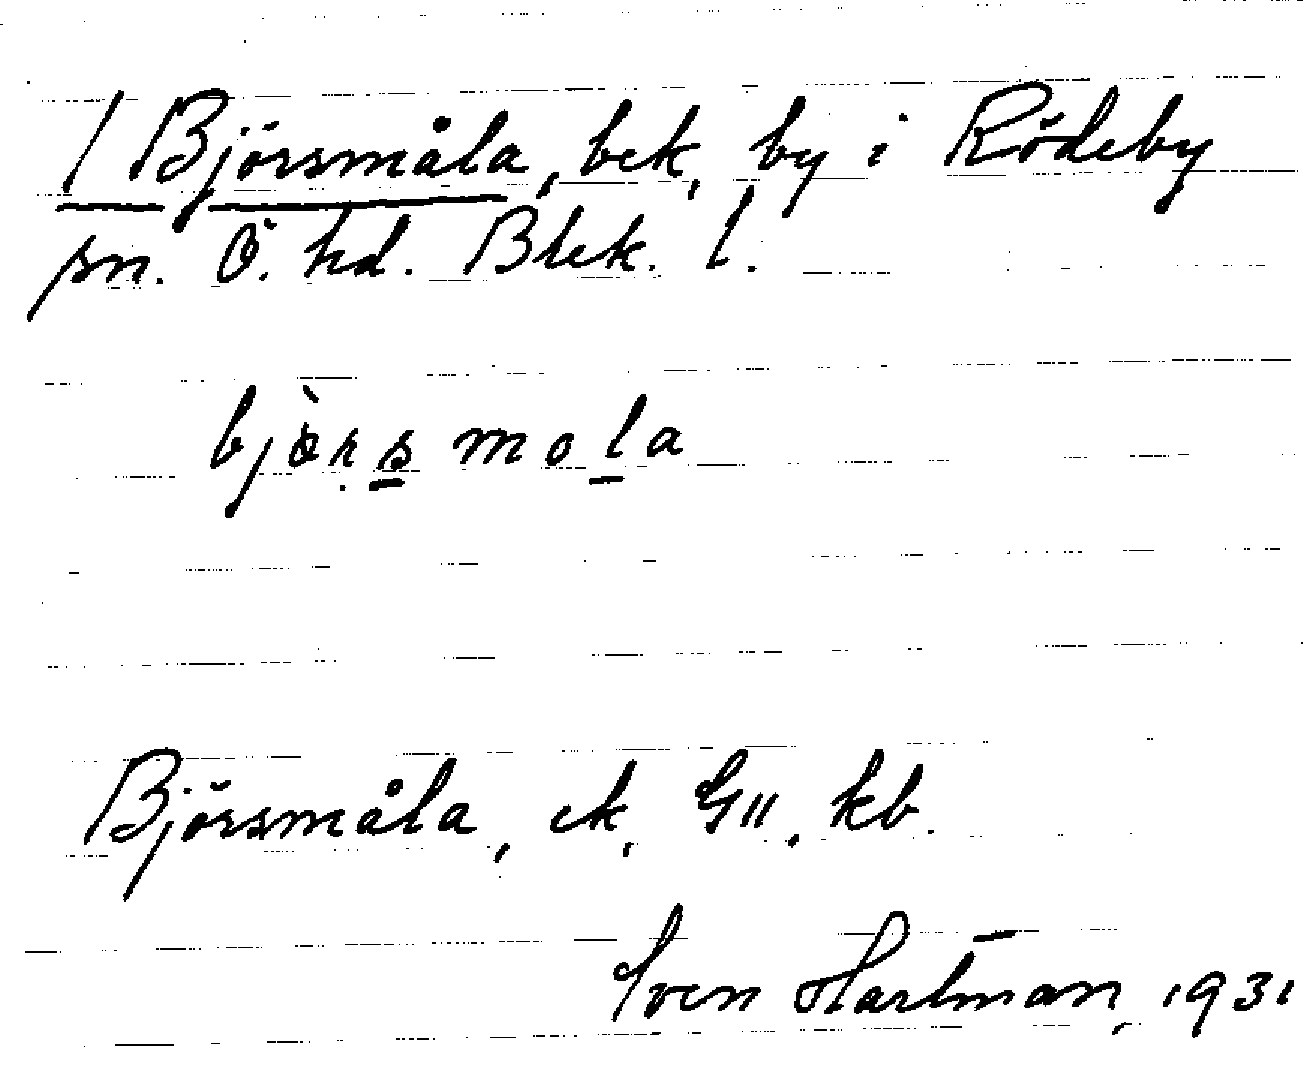 / Björsmåla, bek, by i Rödeby
sn. Ö. hd. Blek. l.
bjòrs mola
Björsmåla, ek, GII. kb.
Sven Hartman, 1931